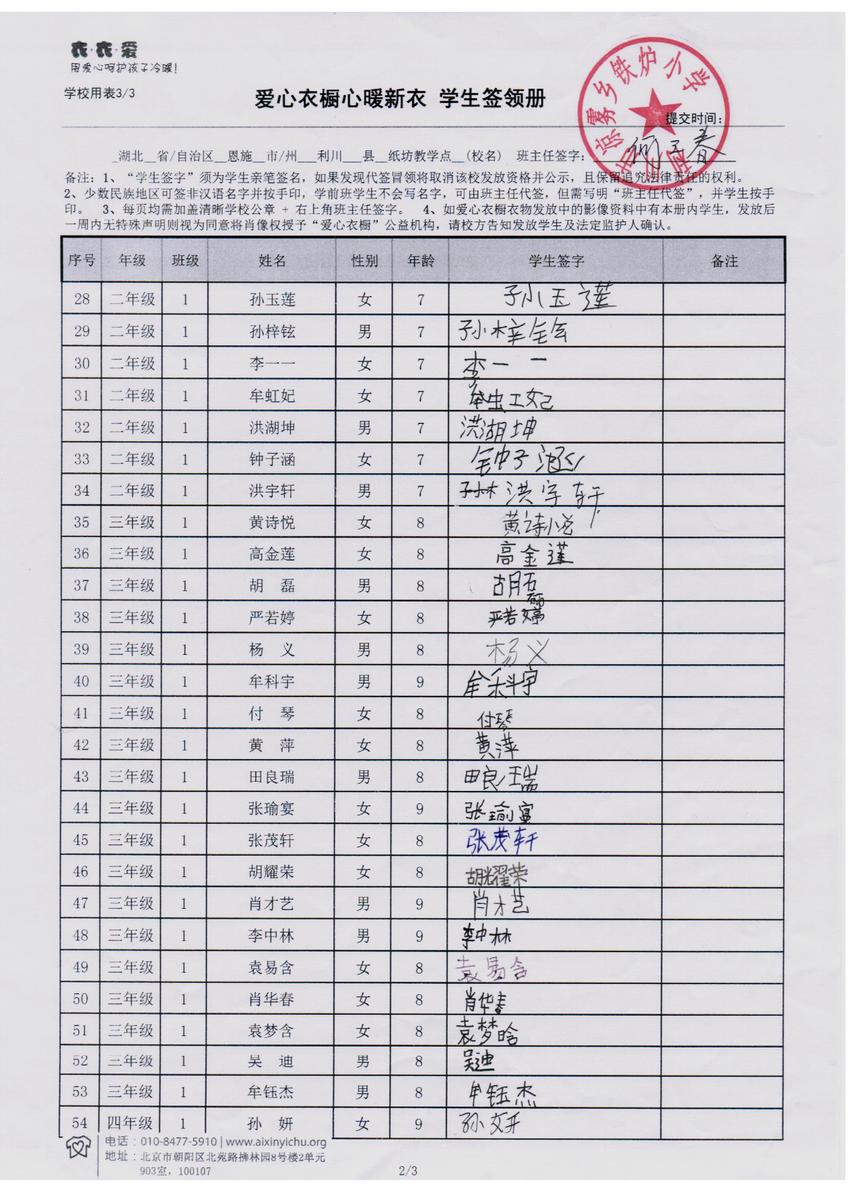 衣·衣·爱
用爱心呵护孩子冷暖!
学校用表3/3
爱心衣橱心暖新衣 学生签领册
提交时间:
京雾乡铁炉小学
_湖北__省/自治区__恩施__市/州___利川___县__纸坊教学点__(校名) 班主任签字:
备注:1、“学生签字”须为学生亲笔签名,如果发现代签冒领将取消该校发放资格并公示,且保留追究法律责任的权利。
2、少数民族地区可签非汉语名字并按手印,学前班学生不会写名字,可由班主任代签,但需写明“班主任代签”,并学生按手
印。 3、每页均需加盖清晰学校公章 + 右上角班主任签字。 4、如爱心衣橱衣物发放中的影像资料中有本册内学生,发放后
一周内无特殊声明则视为同意将肖像权授予“爱心衣橱”公益机构,请校方告知发放学生及法定监护人确认。
序号 年级 班级 姓名 性别 年龄 学生签字 备注
28 二年级 1 孙玉莲 女 7 孙玉莲
29 二年级 1 孙梓铉 男 7 孙梓铉
30 二年级 1 李一一 女 7 李一一
31 二年级 1 牟虹妃 女 7 牟虹妃
32 二年级 1 洪湖坤 男 7 洪湖坤
33 二年级 1 钟子涵 女 7 钟子涵
34 二年级 1 洪宇轩 男 7 洪宇轩
35 三年级 1 黄诗悦 女 8 黄诗悦
36 三年级 1 高金莲 女 8 高金莲
37 三年级 1 胡 磊 男 8 胡磊
38 三年级 1 严若婷 女 8 严若婷
39 三年级 1 杨 义 男 8 杨义
40 三年级 1 牟科宇 男 9 牟科宇
41 三年级 1 付 琴 女 8 付琴
42 三年级 1 黄 萍 女 8 黄萍
43 三年级 1 田良瑞 男 8 田良瑞
44 三年级 1 张瑜宴 女 9 张瑜宴
45 三年级 1 张茂轩 女 8 张茂轩
46 三年级 1 胡耀荣 女 8 胡耀荣
47 三年级 1 肖才艺 男 9 肖才艺
48 三年级 1 李中林 男 9 李中林
49 三年级 1 袁易含 女 8 袁易含
50 三年级 1 肖华春 女 8 肖华春
51 三年级 1 袁梦含 女 8 袁梦晗
52 三年级 1 吴 迪 男 8 吴迪
53 三年级 1 牟钰杰 男 8 牟钰杰
54 四年级 1 孙 妍 女 9 孙妍
电话:010-8477-5910 | www.aixinyichu.org
地址:北京市朝阳区北苑路拂林园8号楼2单元
903室,100107
2/3